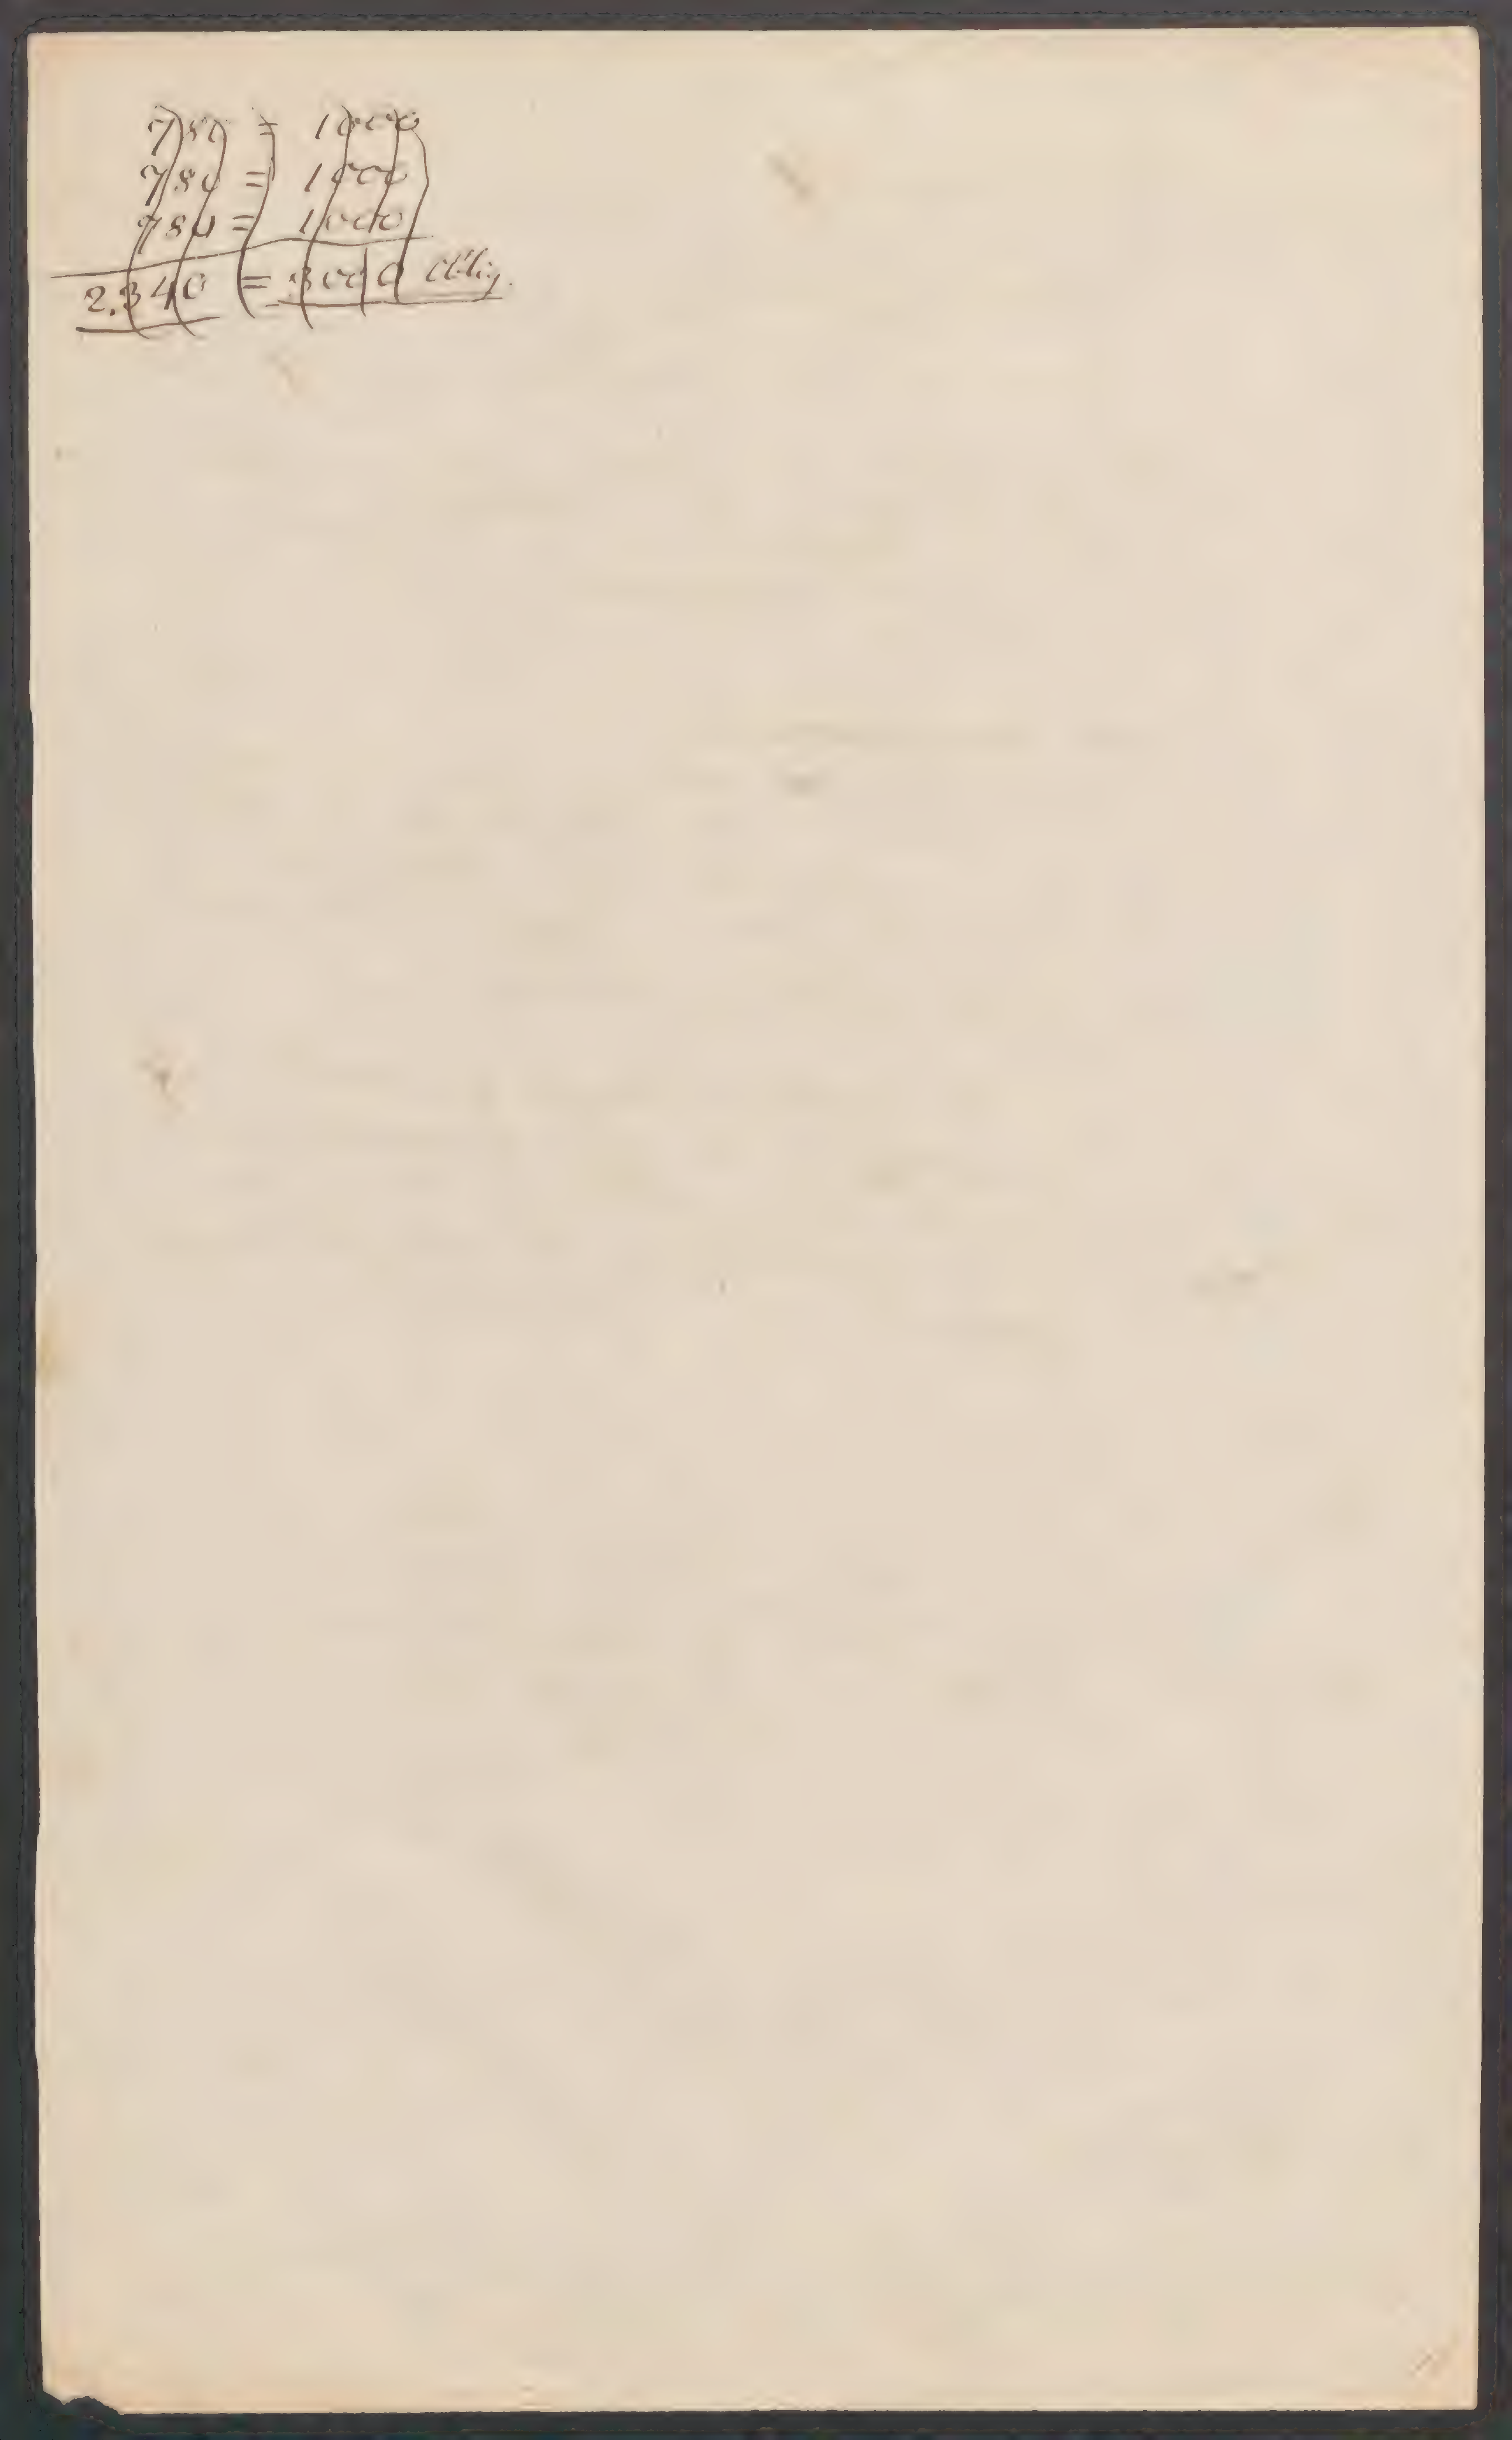 780 = 1000
780 = 1000
780 = 1000
2.340 = 3000 oblig.